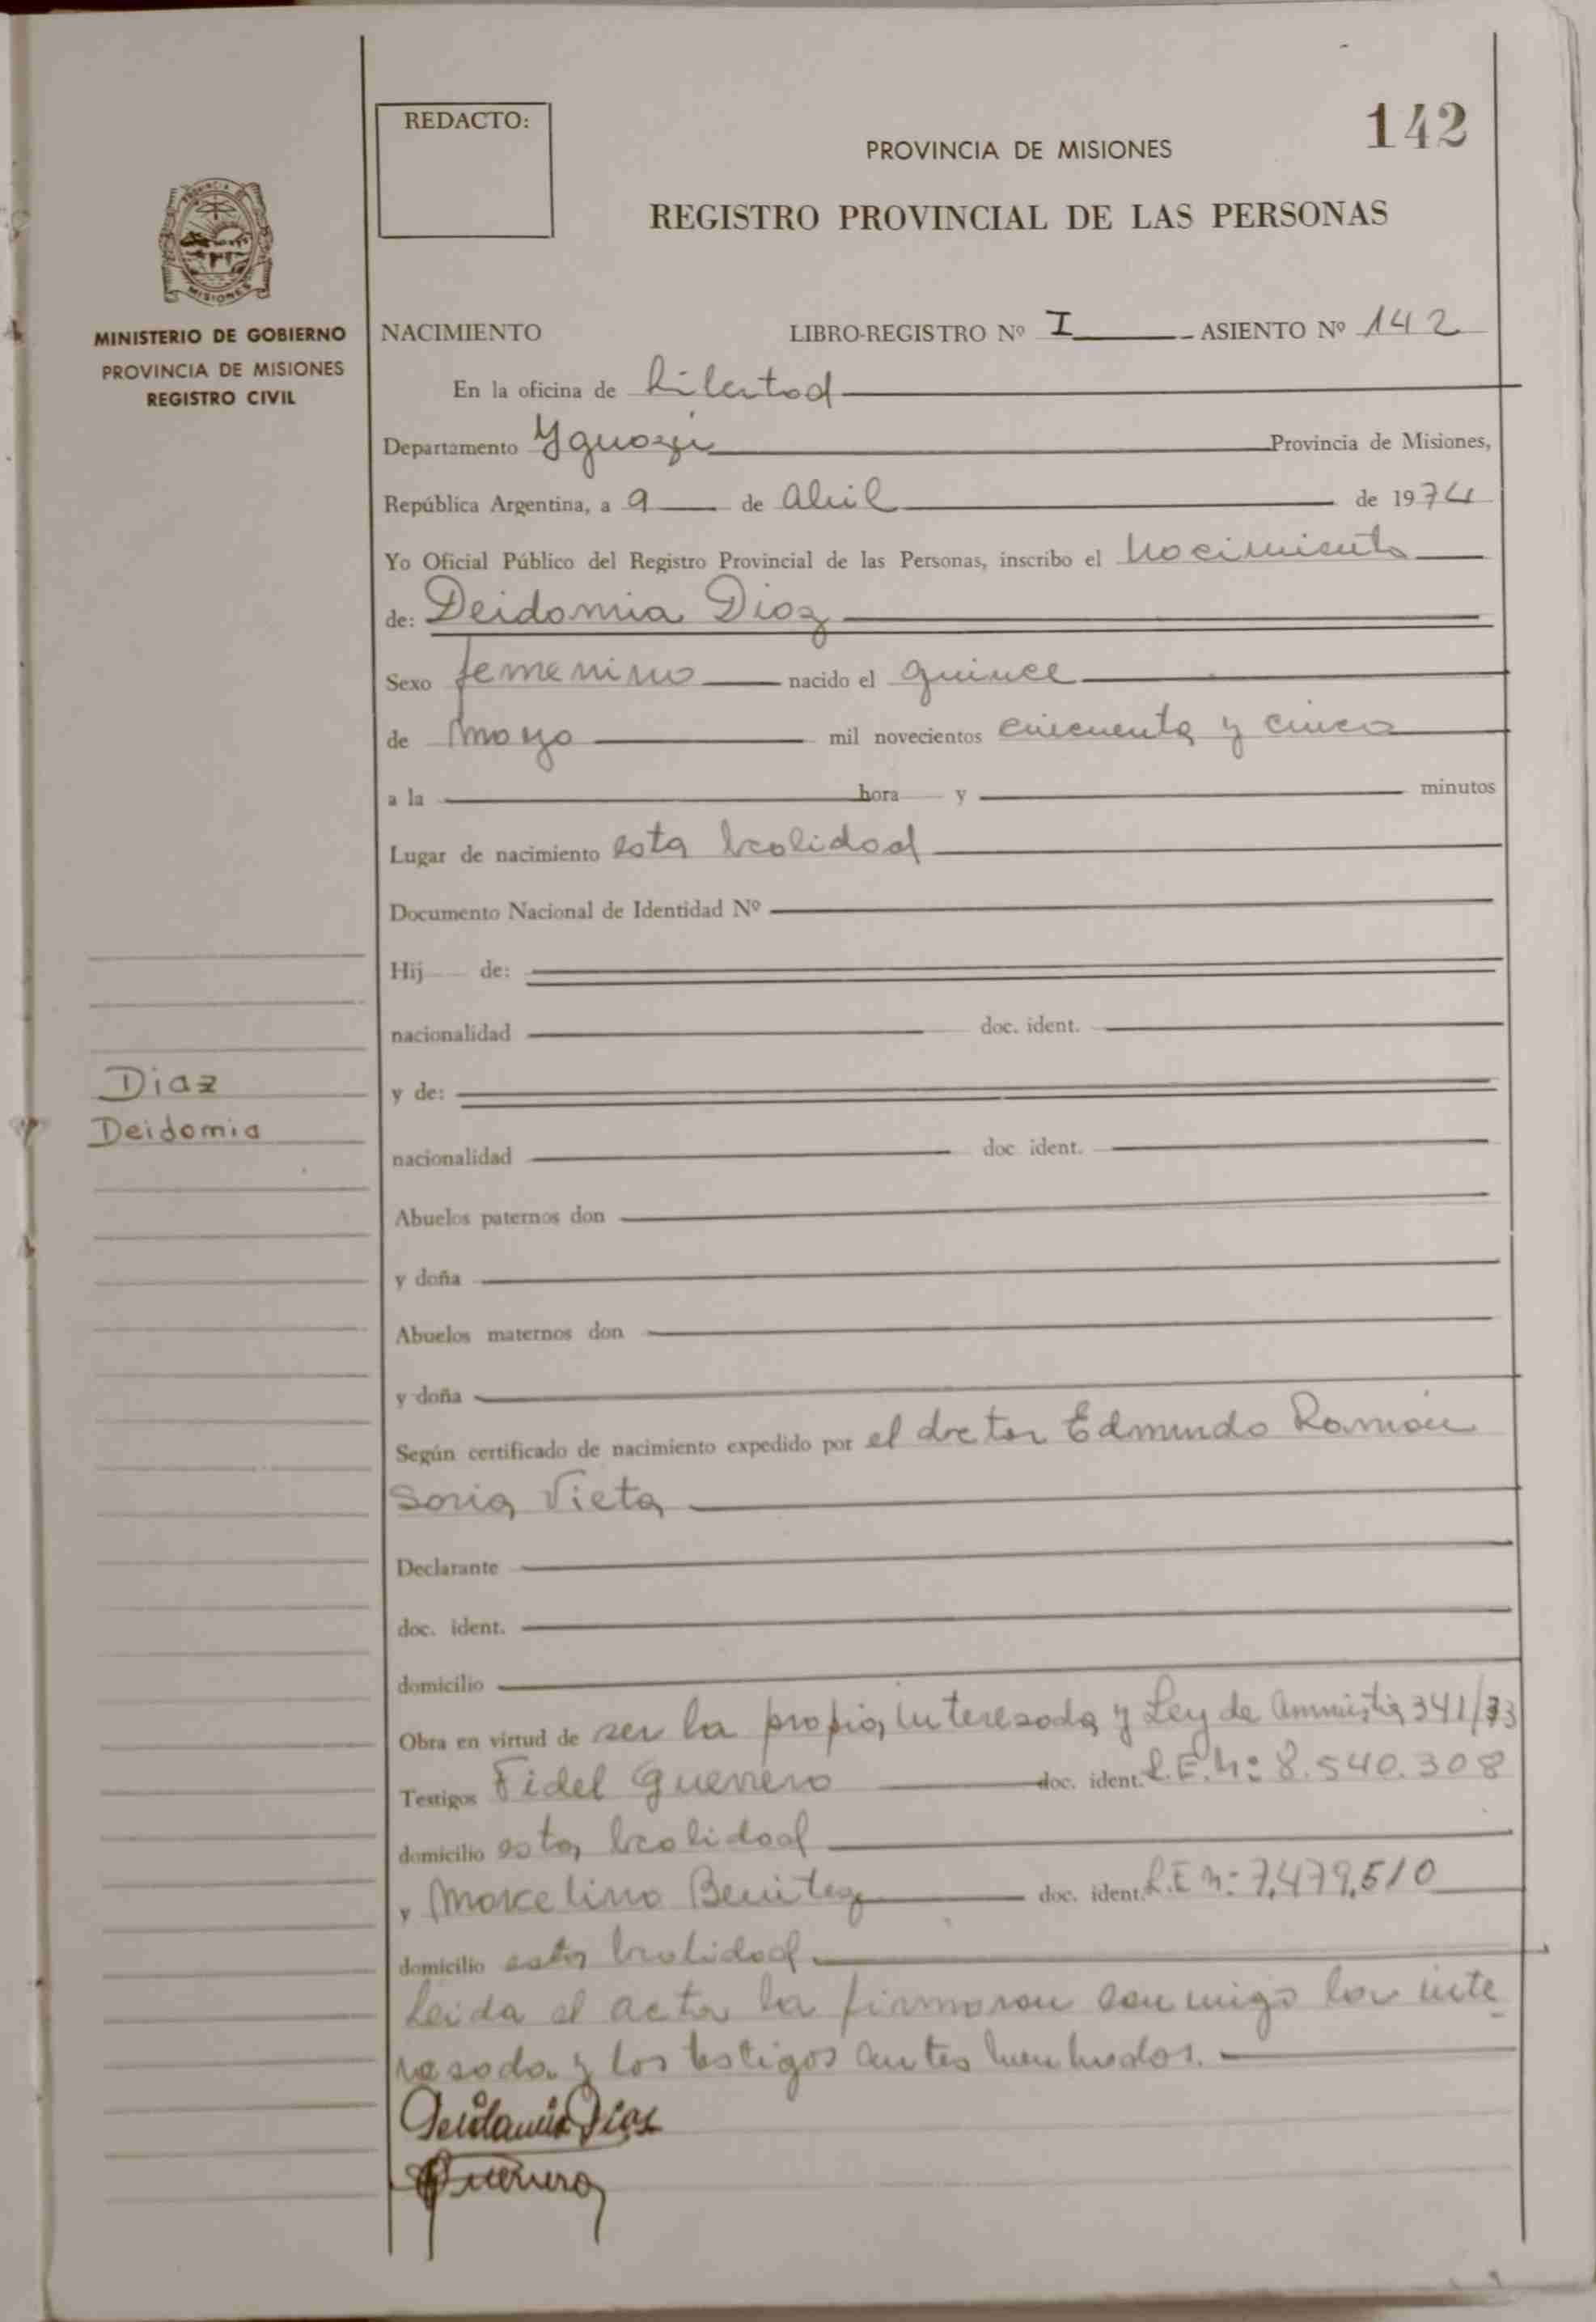 REDACTO:
142
PROVINCIA DE MISIONES
REGISTRO PROVINCIAL DE LAS PERSONAS
MISIONES
MINISTERIO DE GOBIERNO
PROVINCIA DE MISIONES
REGISTRO CIVIL
NACIMIENTO LIBRO-REGISTRO Nº I ASIENTO Nº 142
En la oficina de Libertad
Departamento Yguazú Provincia de Misiones,
República Argentina, a 9 de Abril de 1974
Yo Oficial Público del Registro Provincial de las Personas, inscribo el Nacimiento
de: Deidamia Diaz
Sexo femenino nacido el quince
de mayo mil novecientos cincuenta y cinco
a la hora y minutos
Lugar de nacimiento esta localidad
Documento Nacional de Identidad Nº
Hij de:
nacionalidad doc. ident.
Diaz
y de:
Deidamia
nacionalidad doc ident.
Abuelos paternos don
y doña
Abuelos maternos don
y doña
Según certificado de nacimiento expedido por el doctor Edmundo Ramón
Soria Vieta
Declarante
doc. ident.
domicilio
Obra en virtud de ser la propia interesada y Ley de Amnistia 341/73
Testigos Fidel Guerrero doc. ident. L.E.Nº 8.540.308
domicilio esta localidad
y Marcelino Benitez doc. ident. L.E Nº 7,479,510
domicilio esta localidad
Leida el acta la firmaron conmigo la inte
resada y los testigos antes
Deidamia Diaz
Guerrero